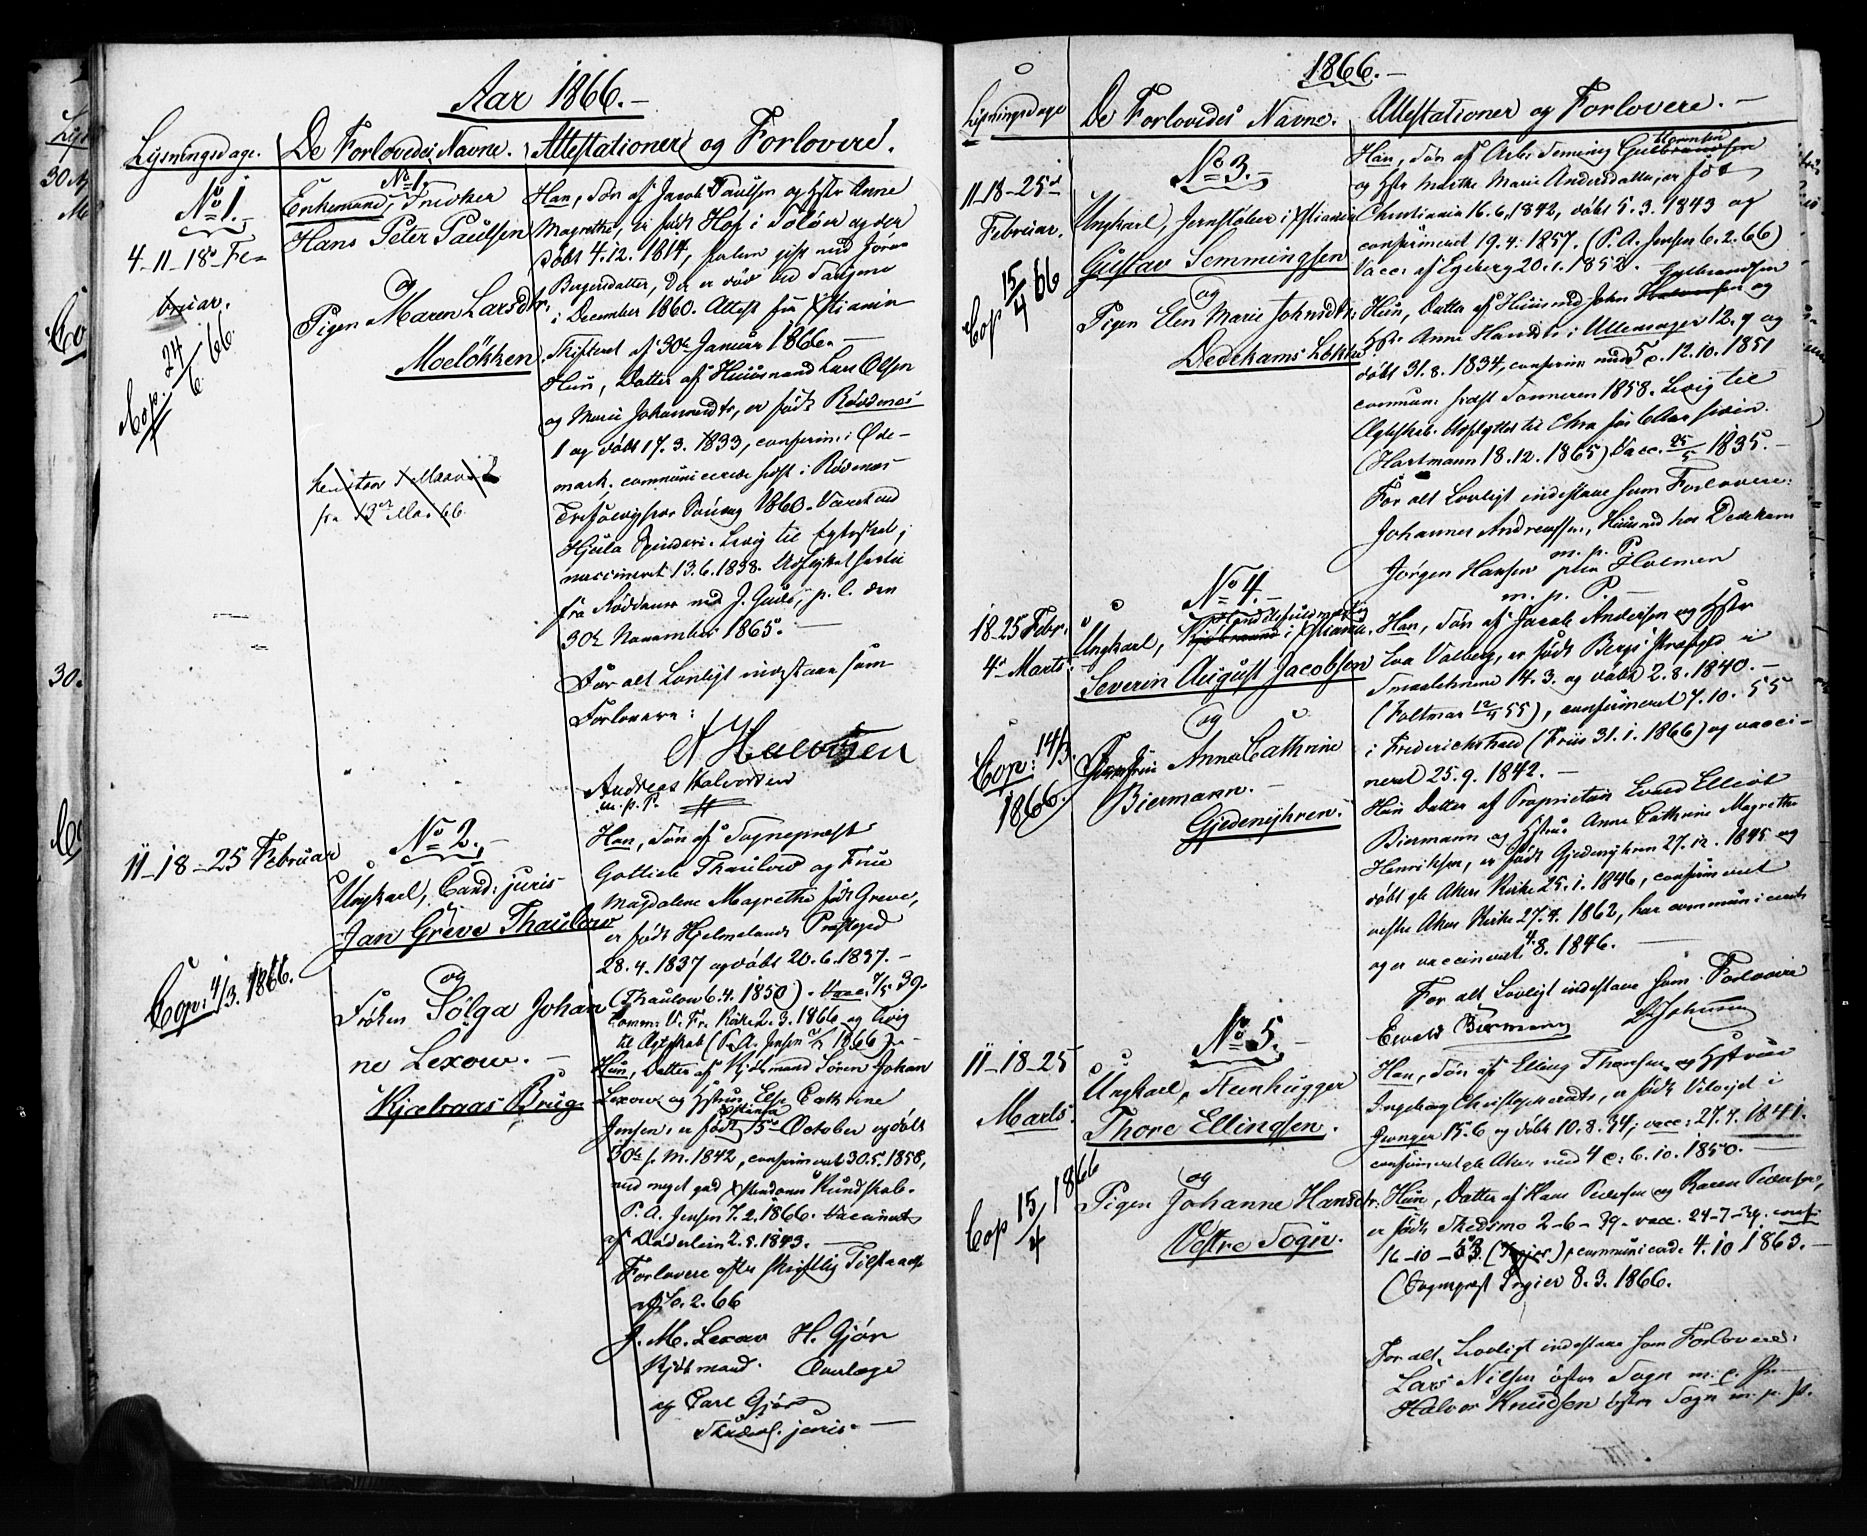 Aar 1866.
Lysningsdage. De Forlovedes Navne. Attestationer og Forlovere.
No 1.
4-11-18 Fe-
bruar.
Cop. 24/6 66.
No 1.
Enkemand,
Hans Peter Paulsen
og
Pigen Maren Larsdtr.
Moeløkken.
fra 13de Mai 66.
Han, Søn af Jacob Paulsen og Hstr Anne
Magrethe, er født Hof i Solør og der
døbt 4.12.1814, forlen gift med
Bergersdatter, der er død ved
i December 1860. Attest fra Xstiania
Skifteret af 30te Januar 1866.
Hun, Datter af Huusmand Lars Olsen
og Marie Johannesdtr, er født Rødenes
1 og døbt 17.3.1833, confirm: i Øde-
mark, communicerede sidst i Rødenes
1860. Været ved
Hjula Spinderi. Ledig til Egteskab;
vaccineret 13.6.1838.
fra Rødenes ved J. p. l. den
30te November 1865.
For alt Lovligt indestaae som
Forlovere:
N Halvorsen
Andreas Halvorsen
m. p. P.
11-18-25 Februar
Cop: 4/3. 1866.
No 2.
Ungkarl, Cand: juris
Jan Greve Thaulow
og
Frøken Sølga Johan
ne Lexow.
Kjælraas Brug.
Han, Søn af Sognepræst
Gottlieb Thaulow og Frue
Magdalene Magrethe født Greve,
er født Hjelmelands Præstegjed
28.4.1837 og døbt 20.6.1837.
(Thaulow 6.4.1850). Vacc: 39.
Comm: V. Fr. Kirke 2.3.1866 og ledig
til Egteskab (P. A. Jensen 1866)
Hun, Datter af Kjøbmand Søren Johan
Lexow og Hstru Else Cathrine
Jensen, er født Xstiania 15de October og døbt
30te s. M. 1842, confirmeret 30.5.1858,
med meget god Xstendoms Kundskab.
P. A. Jensen 7.2.1866. Vaccineret
af Døderlein 2.9.1843.
Forlovere efter skriftlig Tilstaaelse
af 10.2.66
J. M. Lexow H. Gjør
Kjøbmand. Overlæge
og Carl Gjør
Stud. juris.
1866.
Lysningsdage De Forlovedes Navne. Attestationer og Forlovere.
11-18-25de
Februar.
Cop 15/4 66
No 3.
Ungkarl, Jernstøber i Xstiania
Gustav Semmingsen
og
Pigen Elen Marie Johnsdtr.
Dedekams Løkke
Han, Søn af Arb: Semming Gulbrandsen
og Hstr Marthe Marie Andersdatter, er født
Christiania 16.6.1842, døbt 5.3.1843 og
confirmeret 19.4.1857. (P. A. Jensen 6.2.66)
Vacc: af Egeberg 20.1.1852.
Hun, Datter af Huusmd John Gulbrandsen og
Hstr Anne Hansdtr i Ullensager 12.9 og
døbt 31.8.1834, confirm: med 5 c. 12.10.1851
commun: sidst Sommeren 1858. Ledig til
Ægteskab. Udflyttet til Chra for 6 Aar siden.
(Hartmann 18.12.1865) Vacc. 25/5 1835.
For alt Lovligt indestaae som Forlovere:
Johannes Andreassen, Huusmd hos Dedekam
m. p. P.
Jørgen Hansen Holmen
m. p. P.
18-25 Febr:
4de Marts:
Cop: 14/3.
1866.
No 4.
Ungkarl, Handelsfuldmægtig i Xstiania.
Severin August Jacobsen
og
Jomfru Anne Cathrine
Biermann.
Gjedemyhren.
Han, Søn af Jacob Andersen og Hstr
Eva Valberg, er født Bergs Præstegjd i
Smaalehnene 14.3. og døbt 2.8.1840.
(Foltmar 12/4 55), confirmeret 7.10.55
i Frederikshald (Friis 31.1.1866) og vacci-
neret 25.9.1842.
Hun Datter af Proprietair Evald Elliot
Biermann og Hstrue Anne Cathrine Magrethe
Henriksen, er født Gjedemyhren 27.12.1845 og
døbt gle Akers Kirke 25.1.1846, confirmeret
vestre Aker Kirke 27.4.1862, har communiceret
og er vaccineret 4.8.1846.
For alt Lovligt indestaae som Forlovere
Ewald Biermann Johnsen
11-18-25
Marts.
Cop 15/4 1866
No 5.
Ungkarl, Steenhugger
Thore Ellingsen.
og
Pigen Johanne Hansdtr.
Vestre Sogn.
Han, Søn af Elling Thoresen og Hstrue
Ingeborg Christophersdtr, er født i
15.6 og døbt 10.8.34; vacc: 27.7.1841.
confirmeret gle Aker med 4 c: 6.10.1850.
Hun, Datter af Hans Pedersen og Karen Pedersen,
er født Skedsmo 2-6-39. vacc. 24-7-39. conf:
16-10-53, communicerede 4.10.1863.
(Sognepræst 8.3.1866.
For alt Lovligt indestaae som Forlovere:
Lars Nilsen østre Sogn m. p. P.
Halvor Knudsen østre Sogn m. p. P.